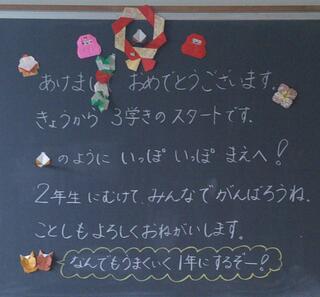 あけまし おめでとうございます。
きょうから 3学きの スタートです。
のように いっぽ いっぽ まえへ!
2年生 にむけて、みんなで がんばろうね。
ことしも よろしく おねがいします。
なんでもうまくいく 1年にするぞー!